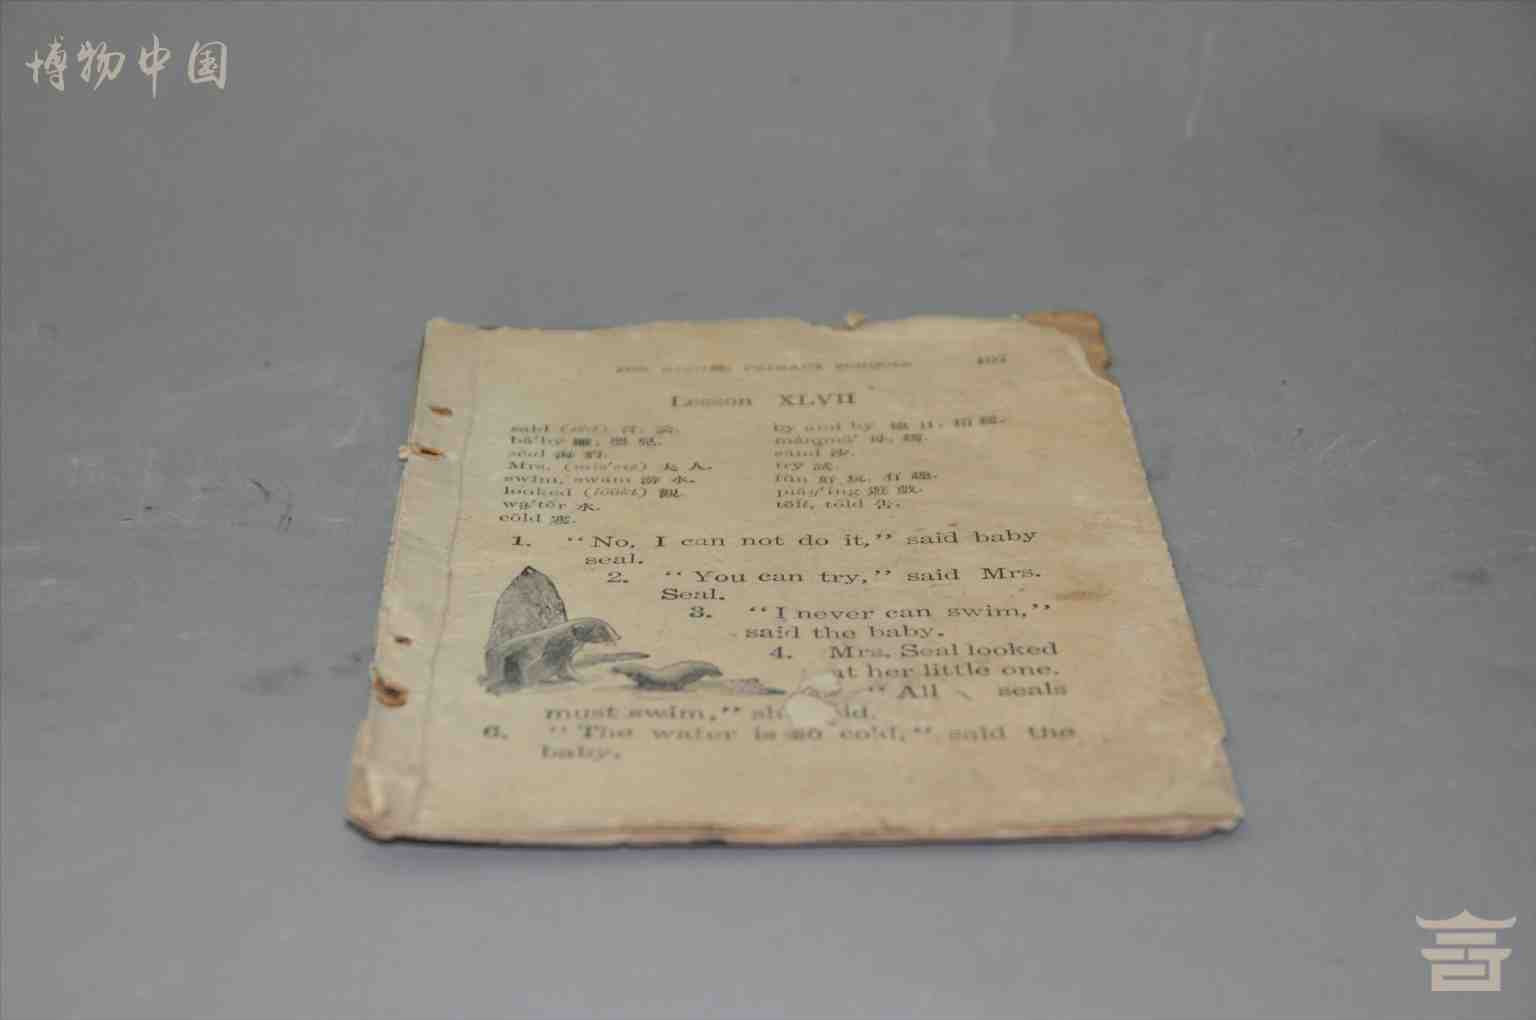 博物中国
FOR HIGHER PRIMARY SCHOOLS 109
Lesson XLVII
said (sĕd)
bā'by
sēal 海豹.
Mrs. (mis'sez) 夫人.
swim, swam 游水.
looked (lŏŏkt) 觀.
wa'tẽr 水.
cōld 寒.
by and by
mamma'
sand 沙.
try 試.
fun
play'ing 遊戲.
tell, tōld 告.
1. “No, I can not do it,” said baby
seal.
2. “You can try,” said Mrs.
Seal.
3. “I never can swim,”
said the baby.
4. Mrs. Seal looked
at her little one.
“All seals
must swim,” sh id.
6. “The water is so cold,” said the
baby.